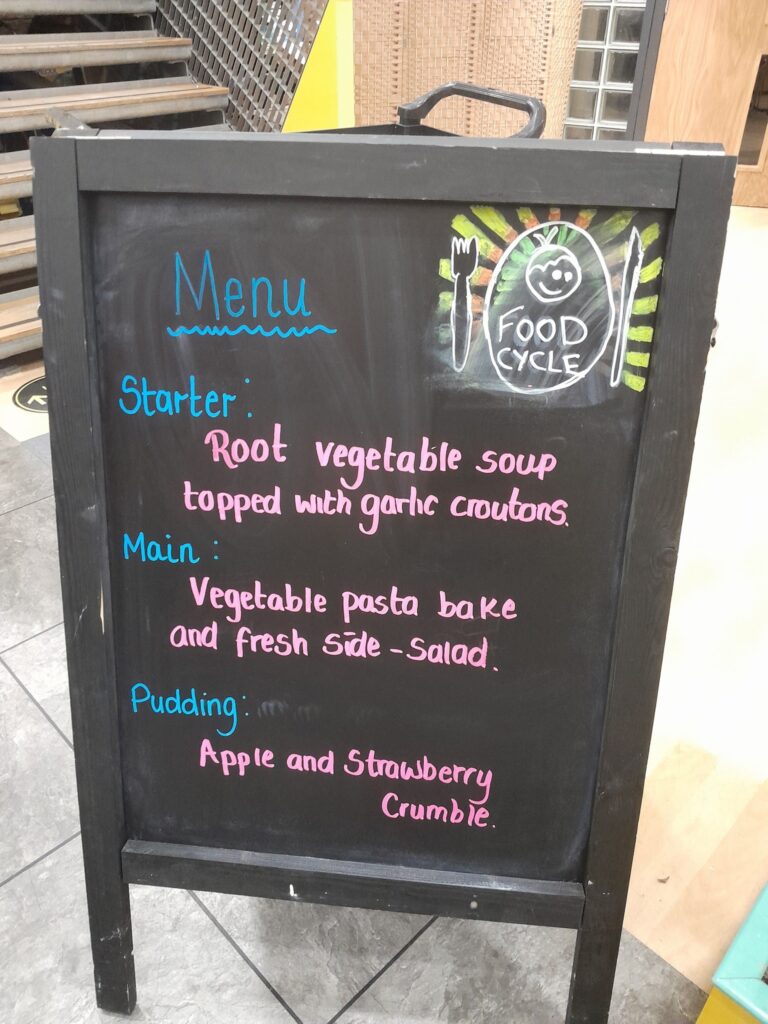 Menu
FOOD
CYCLE
Starter:
Root vegetable soup
topped with garlic croutons.
Main :
Vegetable pasta bake
and fresh side-salad.
Pudding:
Apple and Strawberry
Crumble.